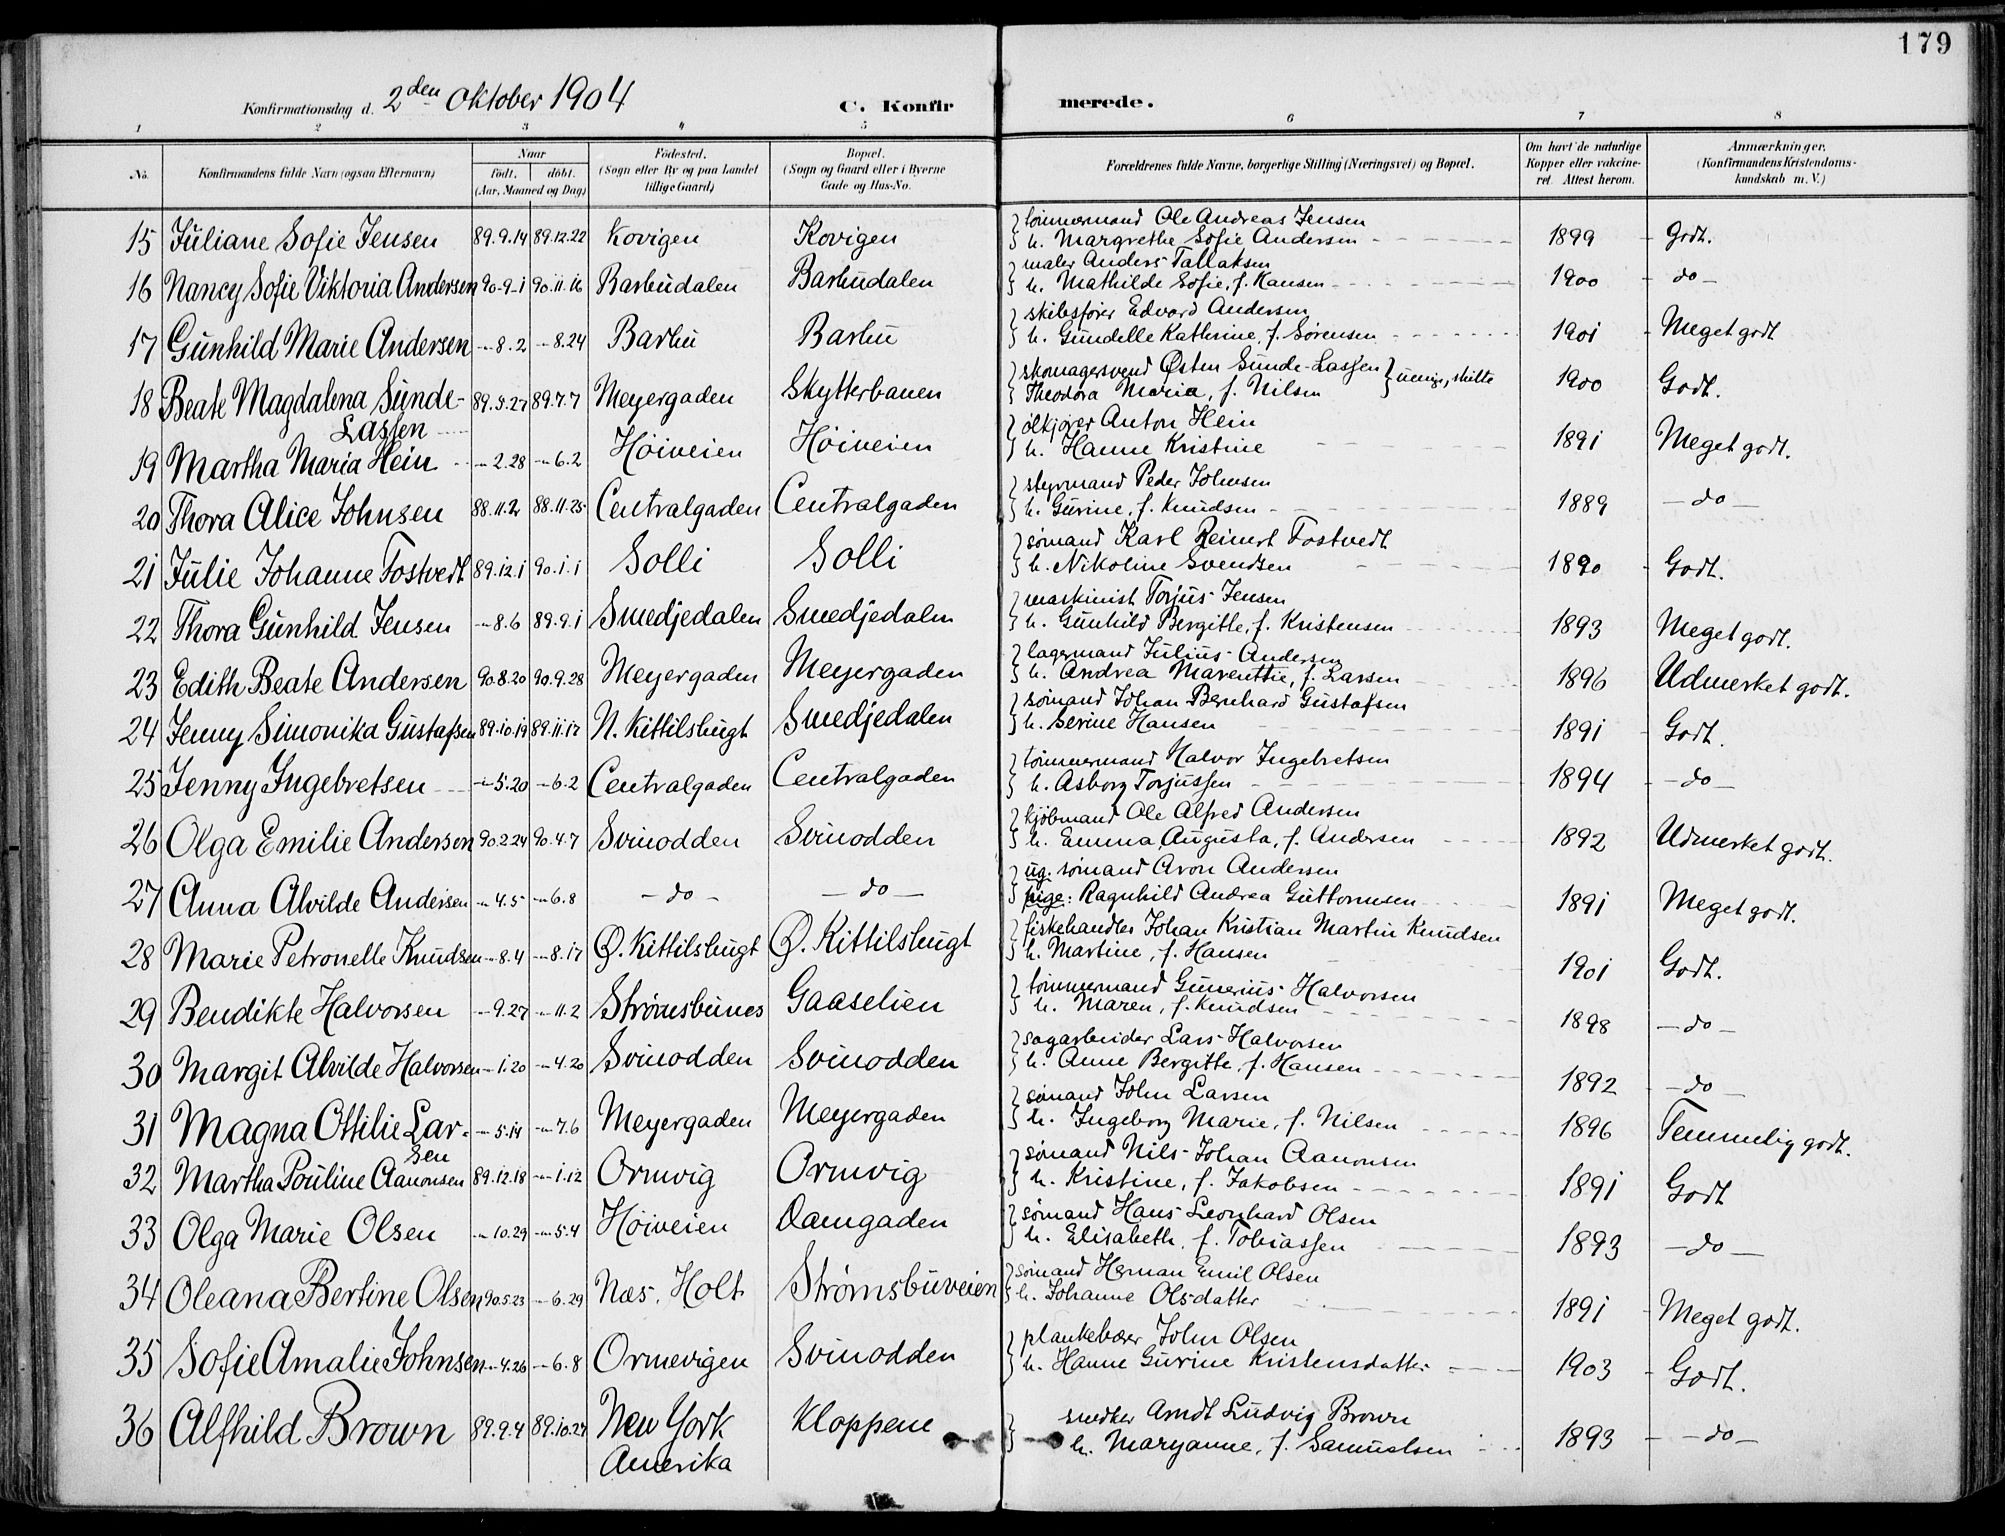 179
Konfirmationsdag d. 2den Oktober 1904 C. Konfirmerede.
1 2 3 4 5 6 7 8
No. Konfirmandens fulde Navn (ogsaa Efternavn) Naar født. døbt. (Aar, Maaned og Dag) Fødested. (Sogn eller By og paa Landet tillige Gaard) Bopæl. (Sogn og Gaard eller i Byerne Gade og Hus-No. Forældrenes fulde Navne, borgerlige Stilling (Næringsvei) og Bopæl. Om havt de naturlige Kopper eller vakcineret. Attest herom. Anmærkninger. (Konfirmandens Kristendomskundskab m. V.)
15 Juliane Sofie Jensen 89.9.14 89.12.22 Kovigen Kovigen tømmermand Ole Andreas Jensen
h. Margrethe Sofie Andersen 1899 Godt.
16 Nancy Sofie Viktoria Andersen 90.9.1 90.11.16 Barbudalen Barbudalen maler Anders Tallaksen
h. Mathilde Sofie, f. Hansen 1900 - do -
17 Gunhild Marie Andersen -"- 8.2 -"- 8.24 Barbu Barbu skibsfører Edvard Andersen
h. Gundelle Kathrine, f. Sørensen 1901 Meget godt
18 Beate Magdalena Sunde- 89.5.27 89.7.7 Meyergaden Skytterbanen skomagersvend Østen Sunde-Lassen
Lassen Theodora Maria, f. Nilsen uenige, skilte 1900 Godt.
19 Martha Maria Hein -"- 2.28 -"- 6.2 Høiveien Høiveien ølkjører Anton Hein
h. Hanne Kristine 1891 Meget godt.
20 Thora Alice Johnsen 88.11.2 88.11.25 Centralgaden Centralgaden styrmand Peder Johnsen
h. Gurine, f. Knudsen 1889 - do -
21 Julie Johanne Fostvedt 89.12.1 90.1.1 Solli Solli sømand Karl Reinert Fostvedt
h. Nikoline Svendsen 1890 Godt.
22 Thora Gunhild Jensen -"- 8.6 89.9.1 Smedjedalen Smedjedalen maskinist Torjus Jensen
h. Gunhild Bergitte, f. Kristensen 1893 Meget godt.
23 Edith Beate Andersen 90.8.20 90.9.28 Meyergaden Meyergaden lagermand Julius Andersen
h. Andrea Marenttie, f. Larsen 1896 Udmerket godt.
24 Jenny Simonika Gustafsen 89.10.19 89.11.17 N. Kittilsbugt Smedjedalen sømand Johan Bernhard Gustafsen
h. Serine Hansen 1891 Godt.
25 Jenny Ingebretsen -"- 5.20 -"- 6.2 Centralgaden Centralgaden tømmermand Halvor Ingebretsen
h. Asborg Torjussen 1894 - do -
26 Olga Emilie Andersen 90.2.24 90.4.7 Svinodden Svinodden kjøbmand Ole Alfred Andersen
h. Emma Augusta, f. Andersen 1892 Udmerket godt.
27 Anna Alvilde Andersen -"- 4.5 -"- 6.8 - do - - do - ug. sømand Aron Andersen
pige: Ragnhild Andrea Guttormsen 1891 Meget godt.
28 Marie Petronelle Knudsen -"- 8.4 -"- 8.17 Ø. Kittilsbugt Ø. Kittilsbugt fiskehandler Johan Kristian Martin Knudsen
h. Martine, f. Hansen 1901 Godt.
29 Bendikte Halvorsen -"- 9.27 -"- 11.2 Strømsbunes Gaaselien tømmermand Gunerius Halvorsen
h. Maren, f. Knudsen 1898 - do -
30 Margit Alvilde Halvorsen -"- 1.20 -"- 4.20 Svinodden Svinodden sagarbeider Lars Halvorsen
h. Anne Bergitte, f. Hansen 1892 - do -
31 Magna Ottilie Lar- -"- 5.14 -"- 7.6 Meyergaden Meyergaden sømand John Larsen
sen h. Ingeborg Marie, f. Nilsen 1896 Temmelig godt.
32 Martha Pouline Aanonsen 89.12.18 -"- 1.12 Ormvig Ormvig sømand Nils Johan Aanonsen
h. Kristine, f. Jakobsen 1891 Godt
33 Olga Marie Olsen -"- 10.29 -"- 5.4 Høiveien Damgaden sømand Hans Leonhard Olsen
h. Elisabeth, f. Tobiassen 1893 - do -
34 Oleana Bertine Olsen 90.5.23 -"- 6.29 Næs, Holt Strømsbuveien sømand Herman Emil Olsen
h. Johanne Olsdatter 1891 Meget godt.
35 Sofie Amalie Johnsen -"- 4.26 -"- 6.8 Ormevigen Svinodden plankebærer John Olsen
h. Hanne Gurine Kristensdatter 1903 Godt.
36 Alfhild Brown 89.9.4 89.10.27 New York Kloppene snedker Arndt Ludvig Brown
Amerika h. Maryanne, f. Samuelsen 1893 - do -